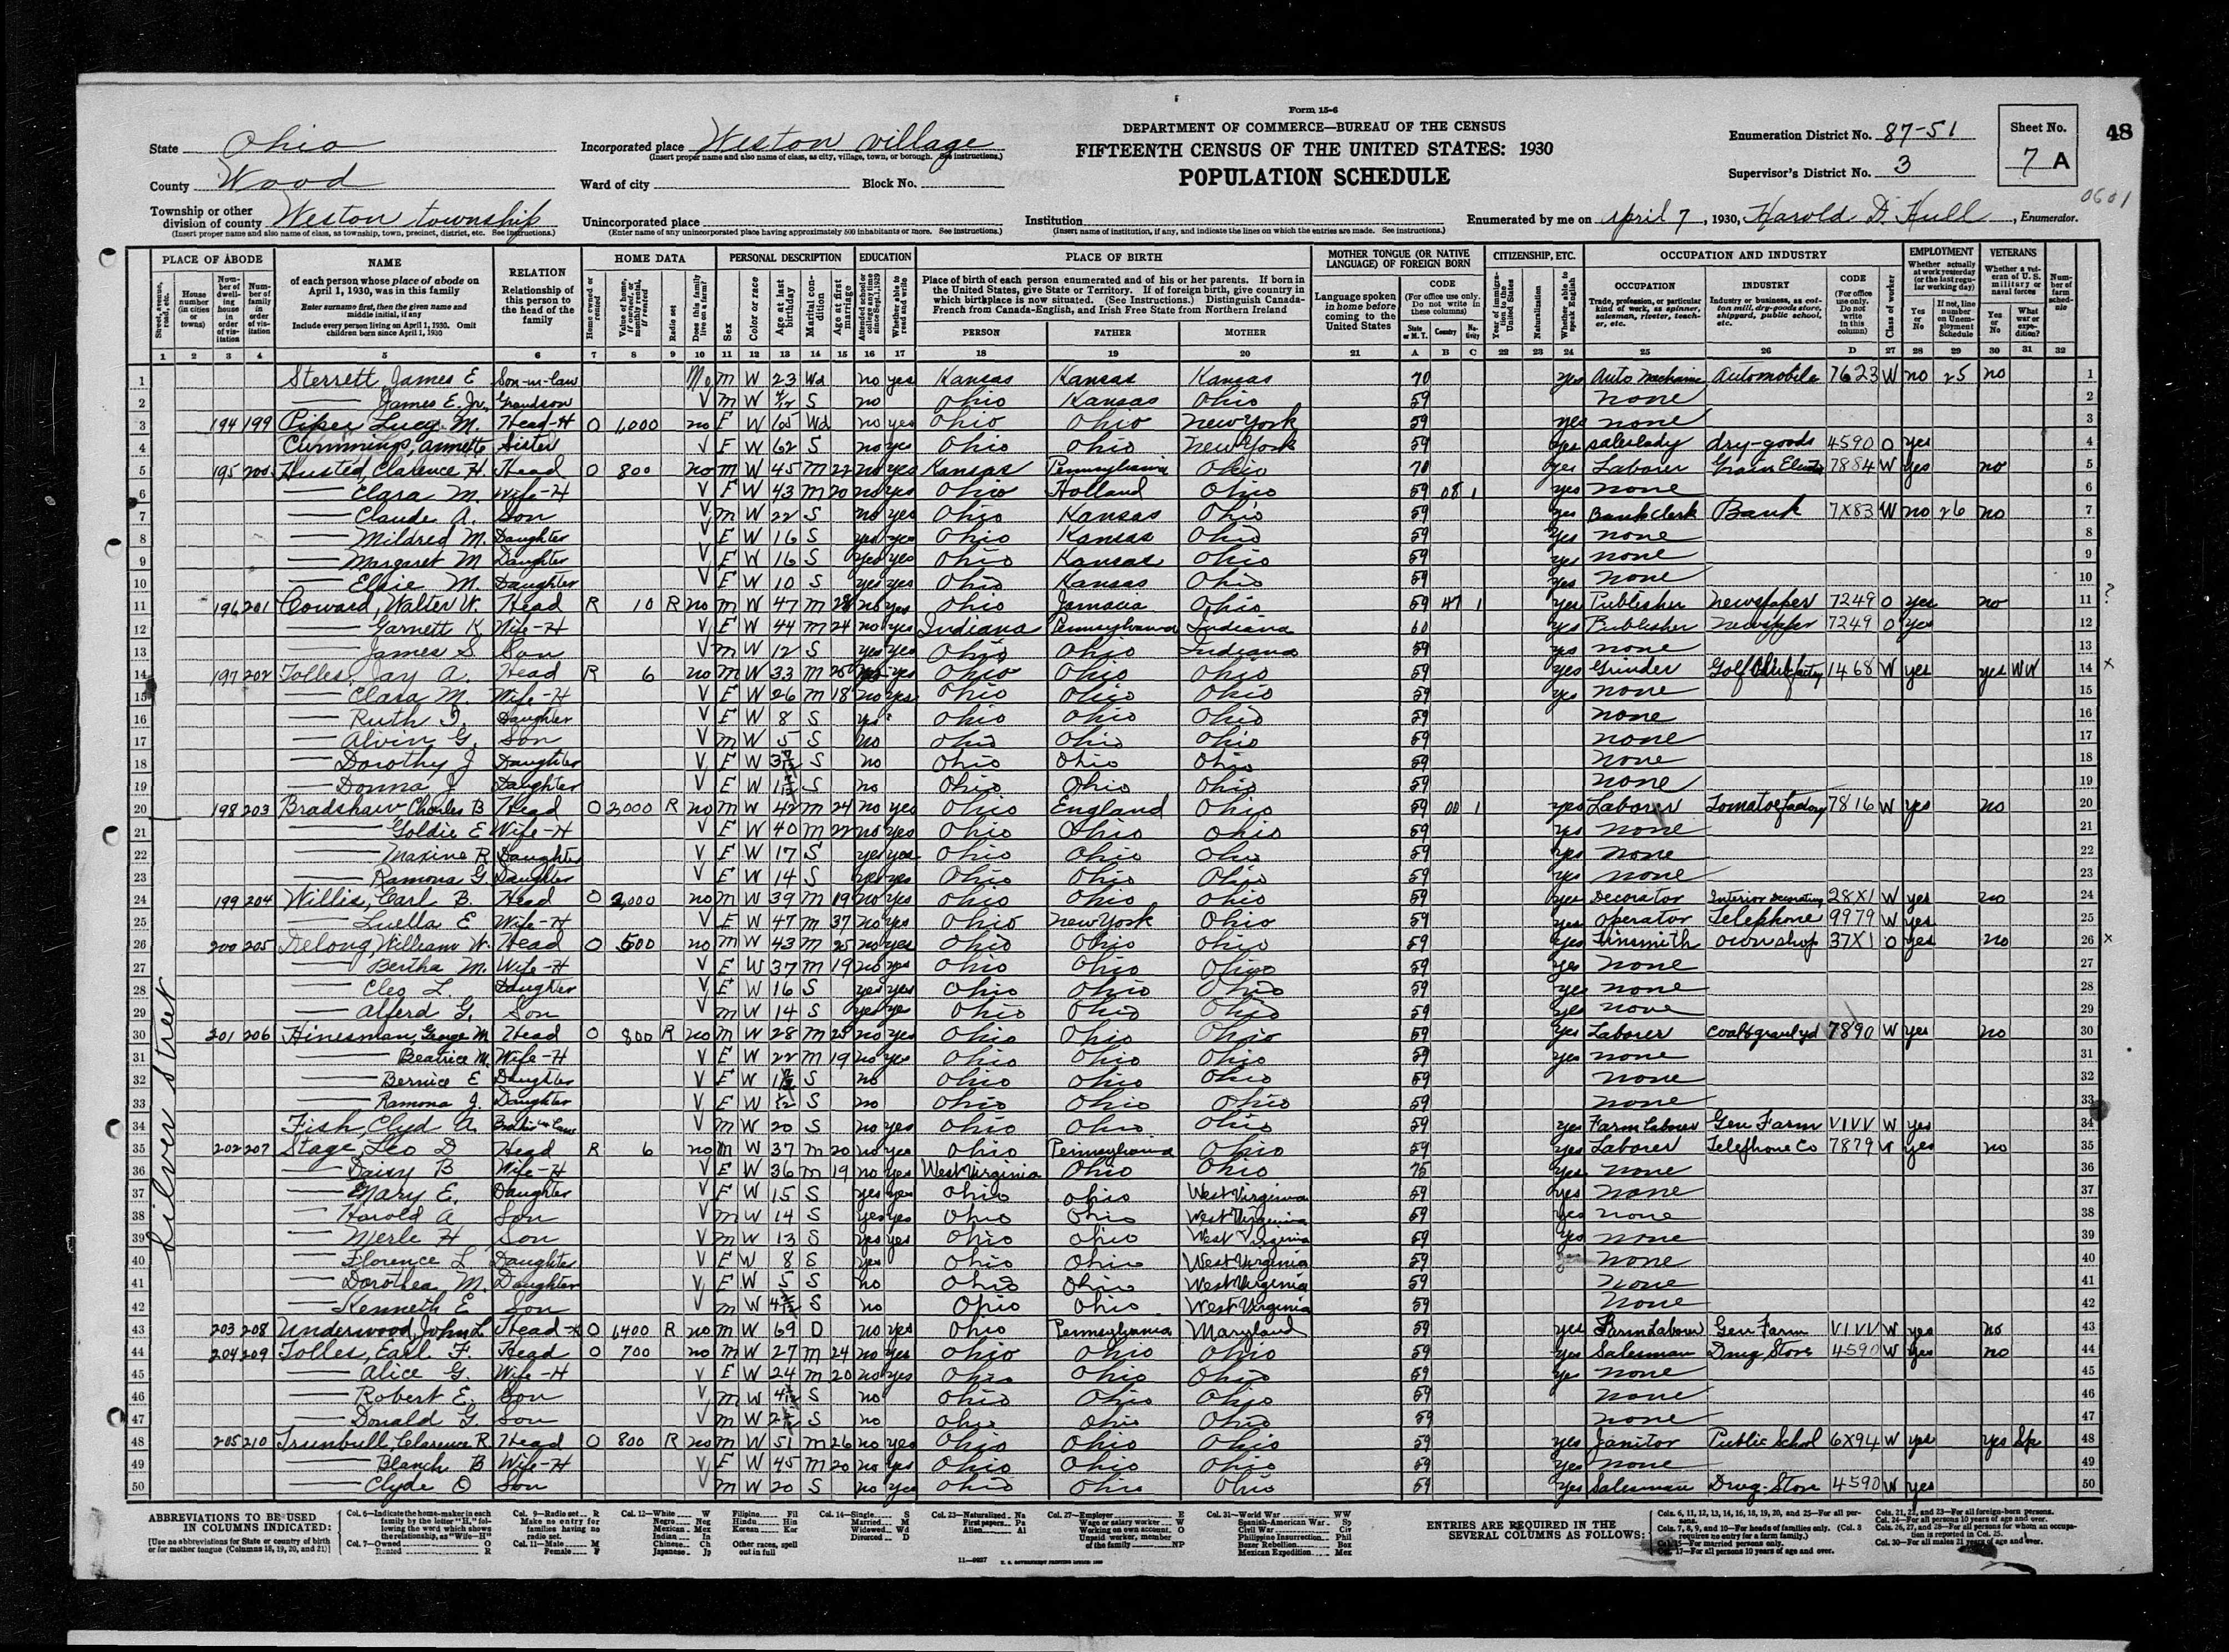 Form 15-6
DEPARTMENT OF COMMERCE—BUREAU OF THE CENSUS
FIFTEENTH CENSUS OF THE UNITED STATES: 1930
POPULATION SCHEDULE
State Ohio
County Wood
Township or other division of county Weston township
(Insert proper name and also name of class, as township, town, precinct, district, etc. See instructions.)
Incorporated place Weston village
(Insert proper name and also name of class, as city, village, town, or borough. See instructions.)
Ward of city Block No.
Unincorporated place
(Enter name of any unincorporated place having approximately 500 inhabitants or more. See instructions.)
Institution
(Insert name of institution, if any, and indicate the lines on which the entries are made. See instructions.)
Enumeration District No. 87-51
Supervisor's District No. 3
Sheet No. 7 A
48
0601
Enumerated by me on April 7, 1930, Harold D. Hull, Enumerator.
PLACE OF ABODE NAME RELATION HOME DATA PERSONAL DESCRIPTION EDUCATION PLACE OF BIRTH MOTHER TONGUE (OR NATIVE LANGUAGE) OF FOREIGN BORN CITIZENSHIP, ETC. OCCUPATION AND INDUSTRY EMPLOYMENT VETERANS
1 2 3 4 5 6 7 8 9 10 11 12 13 14 15 16 17 18 19 20 21 A B C 22 23 24 25 26 D 27 28 29 30 31 32
Silver Street
1 Sterrett, James E Son-in-law No M W 23 Wd no yes Kansas Kansas Kansas 70 yes Auto Mechanic Automobile 7623 W no 25 no 1
2 — James E. Jr. Grandson V M W S no Ohio Kansas Ohio 59 none 2
3 194 199 Piper, Lucy M. Head-H O 1,000 no F W 65 Wd no yes Ohio Ohio New York 59 yes none 3
4 Cummings, Annette Sister V F W 62 S no yes Ohio Ohio New York 59 yes saleslady dry-goods 4590 O yes 4
5 195 200 Husted, Clarence H. Head O 800 no M W 45 M 22 no yes Kansas Pennsylvania Ohio 70 yes Laborer Grain 7884 W yes no 5
6 — Clara M. Wife-H V F W 43 M 20 no yes Ohio Holland Ohio 59 08 1 yes none 6
7 — Claude A. Son V M W 22 S no yes Ohio Kansas Ohio 59 yes Bank clerk Bank 7X83 W no 26 no 7
8 — Mildred M. Daughter V F W 16 S yes yes Ohio Kansas Ohio 59 yes none 8
9 — Margaret M Daughter V F W 16 S yes yes Ohio Kansas Ohio 59 yes none 9
10 — Elsie M. Daughter V F W 10 S yes yes Ohio Kansas Ohio 59 yes none 10
11 196 201 Coward, Walter W. Head R 10 R no M W 47 M 28 no yes Ohio Jamacia Ohio 59 47 1 yes Publisher Newspaper 7249 O yes no 11 ?
12 — Garnett K Wife-H V F W 44 M 24 no yes Indiana Pennsylvania Indiana 60 yes Publisher Newspaper 7249 O yes 12
13 — James S. Son V M W 12 S yes yes Ohio Ohio Indiana 59 yes none 13
14 197 202 Tolles, Jay A. Head R 6 no M W 33 M 25 no yes Ohio Ohio Ohio 59 yes Grinder Golf Club factory 1468 W yes yes WW 14 x
15 — Clara M. Wife-H V F W 26 M 18 no yes Ohio Ohio Ohio 59 yes none 15
16 — Ruth I. Daughter V F W 8 S yes Ohio Ohio Ohio 59 none 16
17 — Alvin G. Son V M W 5 S no Ohio Ohio Ohio 59 none 17
18 — Dorothy J Daughter V F W S no Ohio Ohio Ohio 59 none 18
19 — Donna J Daughter V F W S no Ohio Ohio Ohio 59 none 19
20 198 203 Bradshaw Charles B Head O 2,000 R no M W 42 M 24 no yes Ohio England Ohio 59 00 1 yes Laborer Tomatoe factory 7816 W yes no 20
21 — Goldie E Wife-H V F W 40 M 22 no yes Ohio Ohio Ohio 59 yes none 21
22 — Maxine R Daughter V F W 17 S yes yes Ohio Ohio Ohio 59 yes none 22
23 — Ramona G. Daughter V F W 14 S yes yes Ohio Ohio Ohio 59 yes none 23
24 199 204 Willis, Carl B. Head O 2,000 no M W 39 M 19 no yes Ohio Ohio Ohio 59 yes Decorator Interior Decorating 28X1 W yes no 24
25 — Luella E Wife-H V F W 47 M 37 no yes Ohio New York Ohio 59 yes operator Telephone 9979 W yes 25
26 200 205 Delong, William W. Head O 500 no M W 43 M 25 no yes Ohio Ohio Ohio 59 yes Tinsmith own shop 37X1 O yes no 26 x
27 — Bertha M. Wife-H V F W 37 M 19 no yes Ohio Ohio Ohio 59 yes none 27
28 — Cleo L. Daughter V F W 16 S yes yes Ohio Ohio Ohio 59 yes none 28
29 — Alferd G. Son V M W 14 S yes yes Ohio Ohio Ohio 59 yes none 29
30 201 206 Hinesman, George M. Head O 800 R no M W 28 M 25 no yes Ohio Ohio Ohio 59 yes Laborer coal & gravel yd 7890 W yes no 30
31 — Beatrice M. Wife-H V F W 22 M 19 no yes Ohio Ohio Ohio 59 yes none 31
32 — Bernice E Daughter V F W S no Ohio Ohio Ohio 59 none 32
33 — Ramona J. Daughter V F W S no Ohio Ohio Ohio 59 none 33
34 Fish, Clyd A. Brother in Law V M W 20 S no yes Ohio Ohio Ohio 59 yes Farm Laborer Gen Farm VIVV W yes 34
35 202 207 Stage, Leo D Head R 6 no M W 37 M 20 no yes Ohio Pennsylvania Ohio 59 yes Laborer Telephone Co 7879 W yes no 35
36 — Daisy B Wife-H V F W 36 M 19 no yes West Virginia Ohio Ohio 75 yes none 36
37 — Mary E. Daughter V F W 15 S yes yes Ohio Ohio West Virginia 59 yes none 37
38 — Harold A Son V M W 14 S yes yes Ohio Ohio West Virginia 59 yes none 38
39 — Merle H Son V M W 13 S yes yes Ohio Ohio West Virginia 59 yes none 39
40 — Florence L Daughter V F W 8 S yes Ohio Ohio West Virginia 59 none 40
41 — Dorothea M. Daughter V F W 5 S no Ohio Ohio West Virginia 59 none 41
42 — Kenneth E Son V M W S no Ohio Ohio West Virginia 59 none 42
43 203 208 Underwood, John L Head O 1400 R no M W 69 D no yes Ohio Pennsylvania Maryland 59 yes Farm Laborer Gen Farm VIVV W yes no 43
44 204 209 Tolles, Earl F. Head O 700 no M W 27 M 24 no yes Ohio Ohio Ohio 59 yes Salesman Drug Store 4590 W yes no 44
45 — Alice G. Wife-H V F W 24 M 20 no yes Ohio Ohio Ohio 59 yes none 45
46 — Robert E. Son V M W S no Ohio Ohio Ohio 59 none 46
47 — Donald G. Son V M W S no Ohio Ohio Ohio 59 none 47
48 205 210 Trunbull, Clarence R. Head O 800 R no M W 51 M 26 no yes Ohio Ohio Ohio 59 yes Janitor Public School 6X94 W yes yes Sp 48
49 — Blanch B Wife-H V F W 45 M 20 no yes Ohio Ohio Ohio 59 yes none 49
50 — Clyde O Son V M W 20 S no yes Ohio Ohio Ohio 59 yes Salesman Drug-Store 4590 W yes 50
ABBREVIATIONS TO BE USED IN COLUMNS INDICATED:
[Use no abbreviations for State or country of birth or for mother tongue (Columns 18, 19, 20, and 21)]
ENTRIES ARE REQUIRED IN THE SEVERAL COLUMNS AS FOLLOWS: